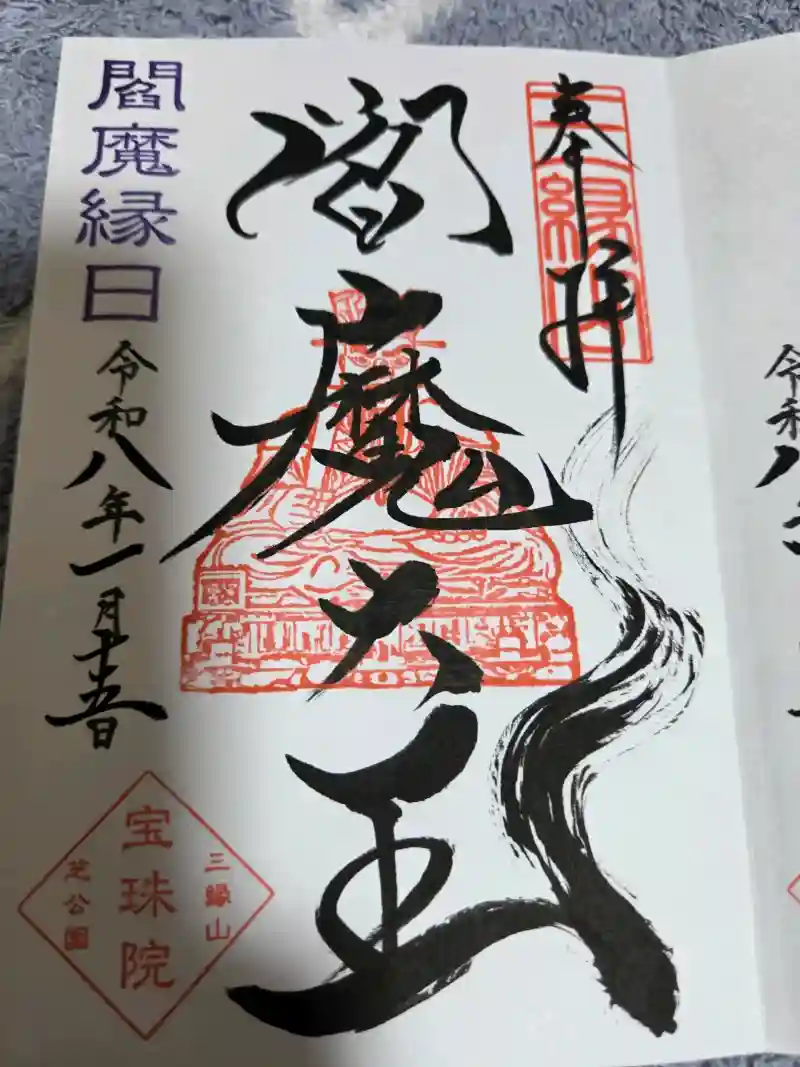 奉拝
三縁山
閻魔大王
閻魔縁日
令和八年一月十五日
三縁山
宝珠院
芝公園
令和八